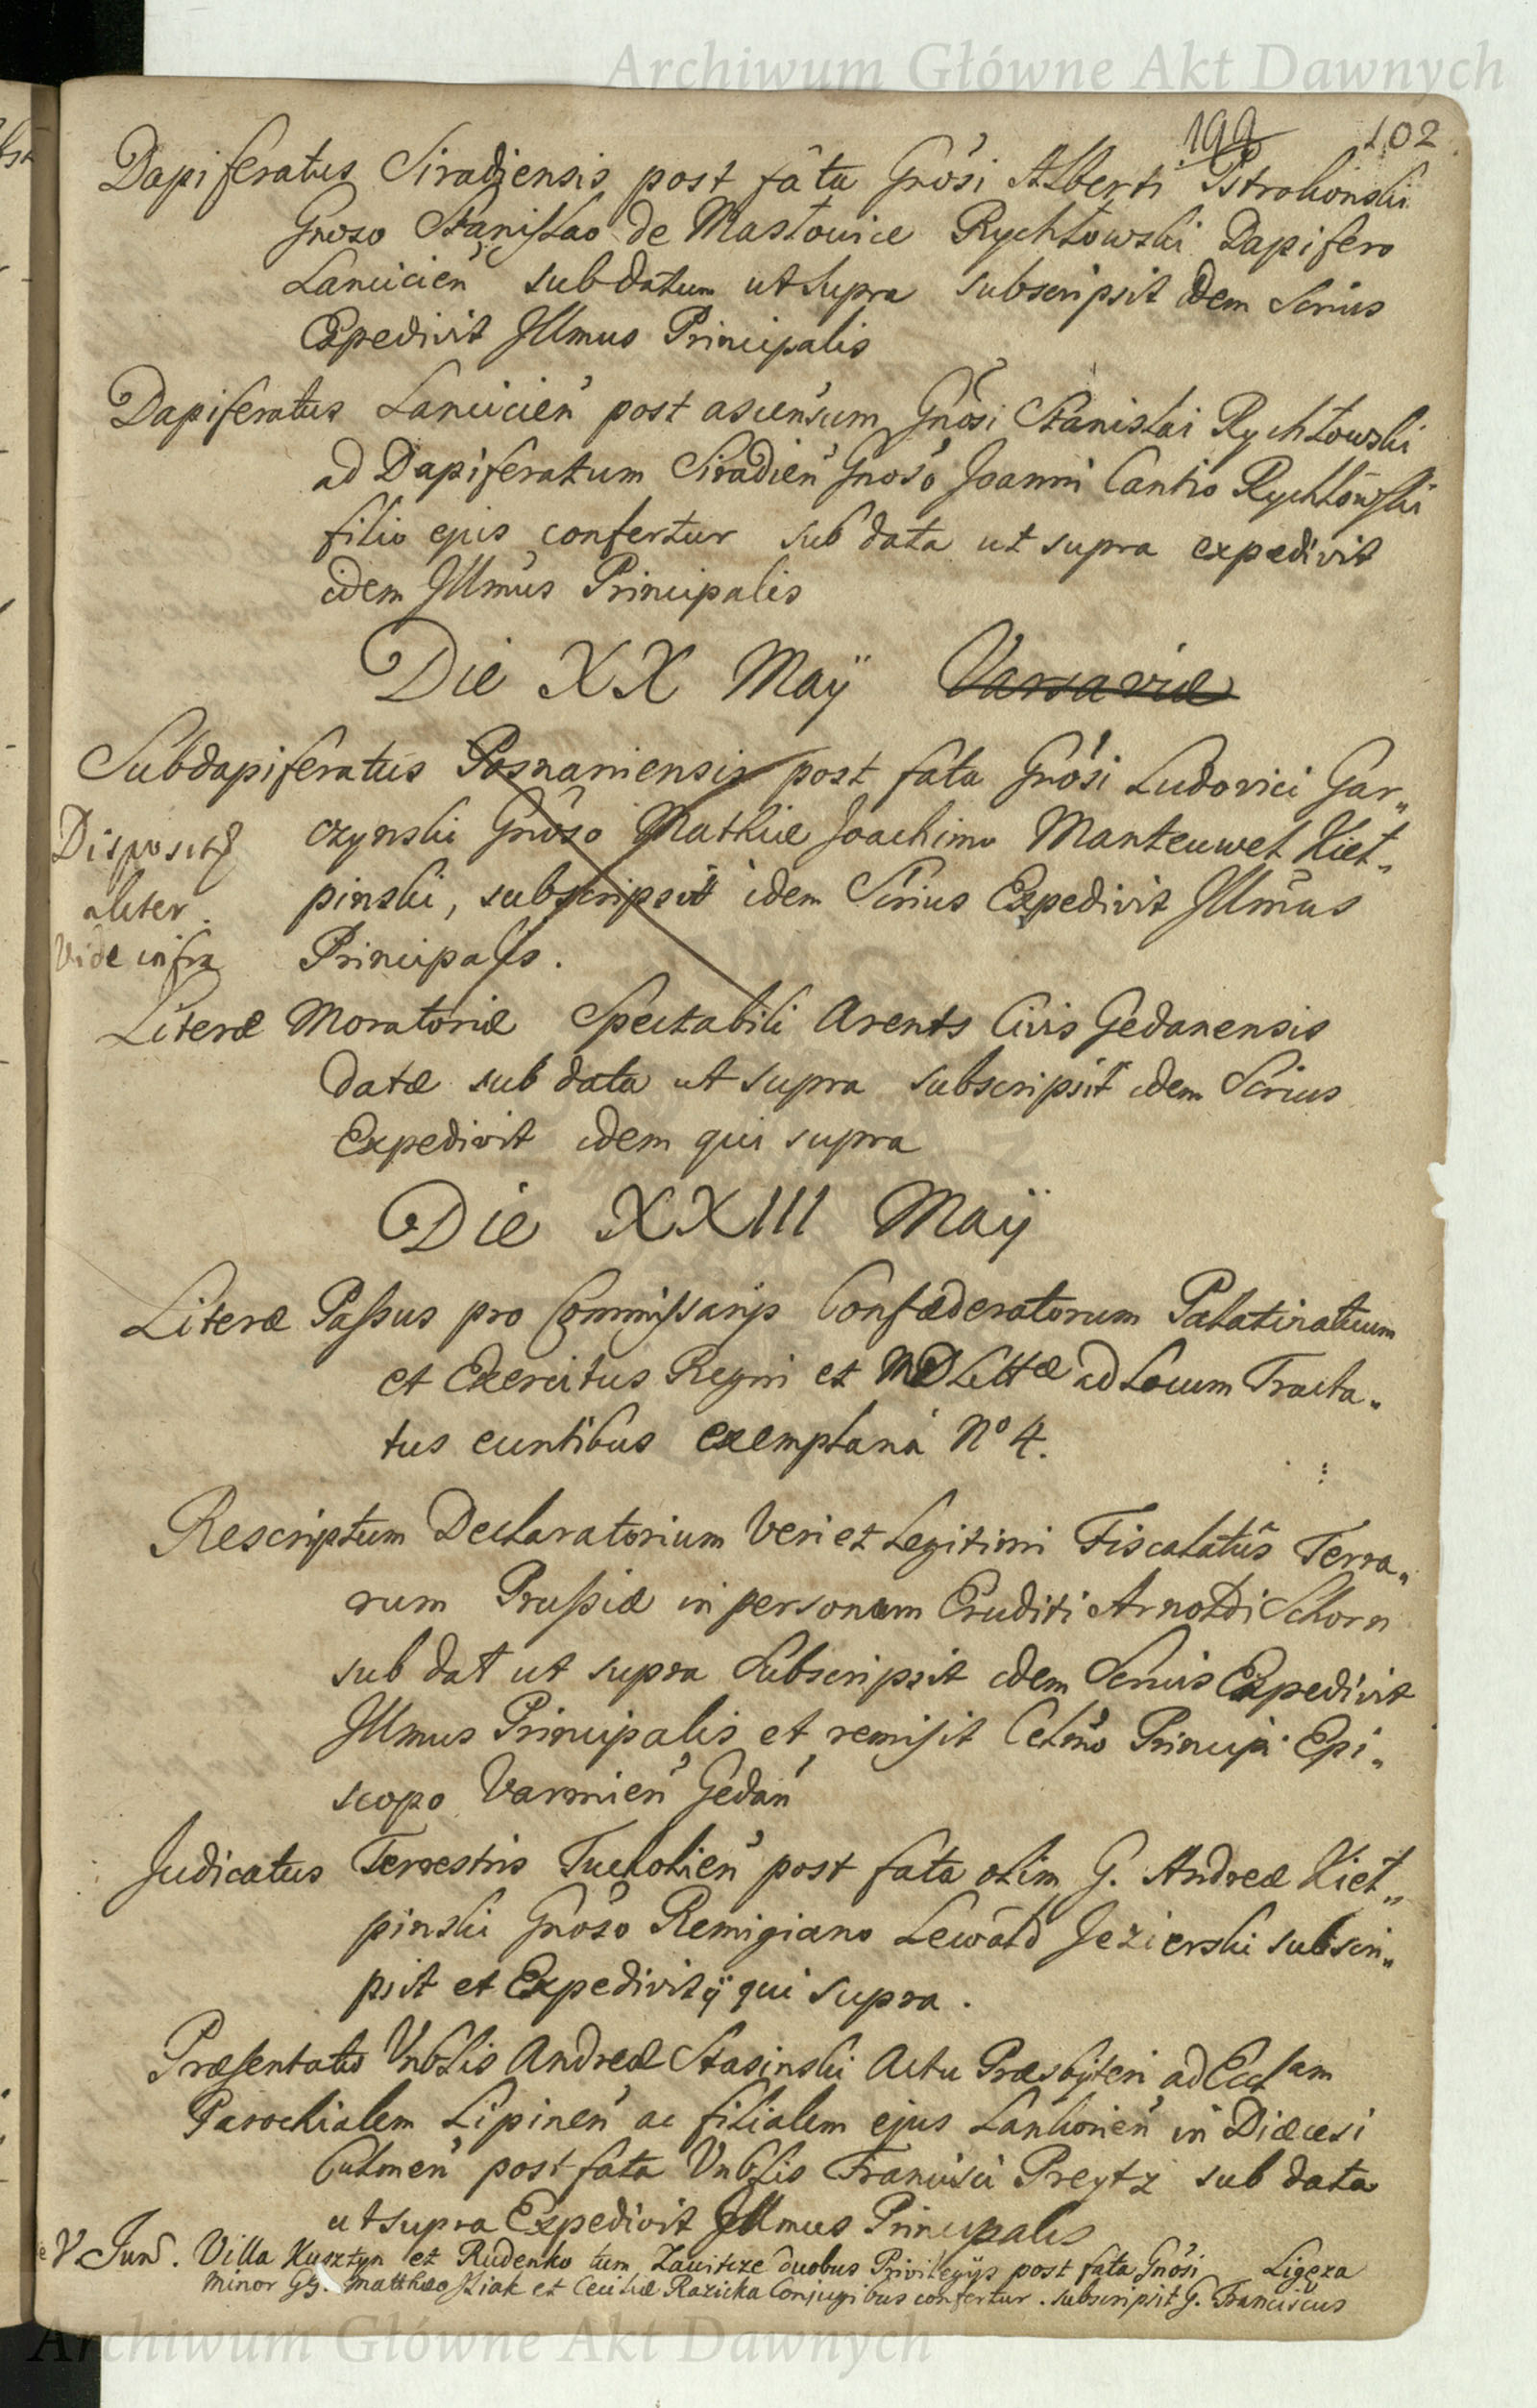 Archiwum Główne Akt Dawnych
199 102
Dapiferatus Siradiensis post fata Gnosi Alberti Pstrokonski
Gnoso Stanislao de Masłowice Rychłowski Dapifero
Lancicien sub datum ut supra subscripsit idem Serius
Expedivit Illmus Principalis
Dapiferatus Lancicien post ascensum Gnosi Stanislai Rychłowski
ad Dapiferatum Siradien Gnoso Joanni Cantio Rychłowski
filio ejus confertur sub data ut supra expedivit
idem Illmus Principalis
Die XX Maÿ Varsaviæ
Subdapiferatus Posnaniensis post fata Gnosi Ludovici Gar„
Disposit9 czynski Gnoso Mathiæ Joachimo Manteuwel Kieł„
aliter. pinski, subscripsit idem Serius Expedivit Illmus
Vide infra Principalis.
Literæ Moratoriæ Spectabili Arents Civis Gedanensis
datæ sub data ut supra subscripsit idem Serius
Expedivit idem qui supra
Die XXIII Maÿ
Literæ Passus pro Commissarijs Confæderatorum Palatinatuum
et Exercitus Regni et MDLittæ ad Locum Tracta„
tus euntibus exemplaria No 4.
Rescriptum Declaratorium Veri et Legitimi Fiscalatus Terra„
rum Prussiæ in personam Eruditi Arnoldi Schorn
sub dat ut supra Subscripsit idem Serius Expedivit
Illmus Principalis et remisit Celmo Principi Epi„
scopo Varmien Gedan
Judicatus Terrestris Tucholien post fata olim G. Andreæ Kieł„
pinski Gnoso Remigiano Lewald Jezierski subscri„
psit et Expedivit ÿ qui supra.
Præsentatio Vnblis Andreæ Stasinski Actu Præsbyteri ad Ecclam
Parochialem Lipinen ac filialem ejus Lankorien in Diæcesi
Culmen post fata Vnblis Francisci Preytz sub data
ut supra Expedivit Illmus Principalis
V. Jun. Villa Kusztyn et Rudenko tum duobus Privilegijs post fata Gnosi Ligęza
Minor GG. Matthæo Ziak et Ceciliæ Razicka Conjugibus confertur. subscripsit G. Franciscus
Archiwum Główne Akt Dawnych